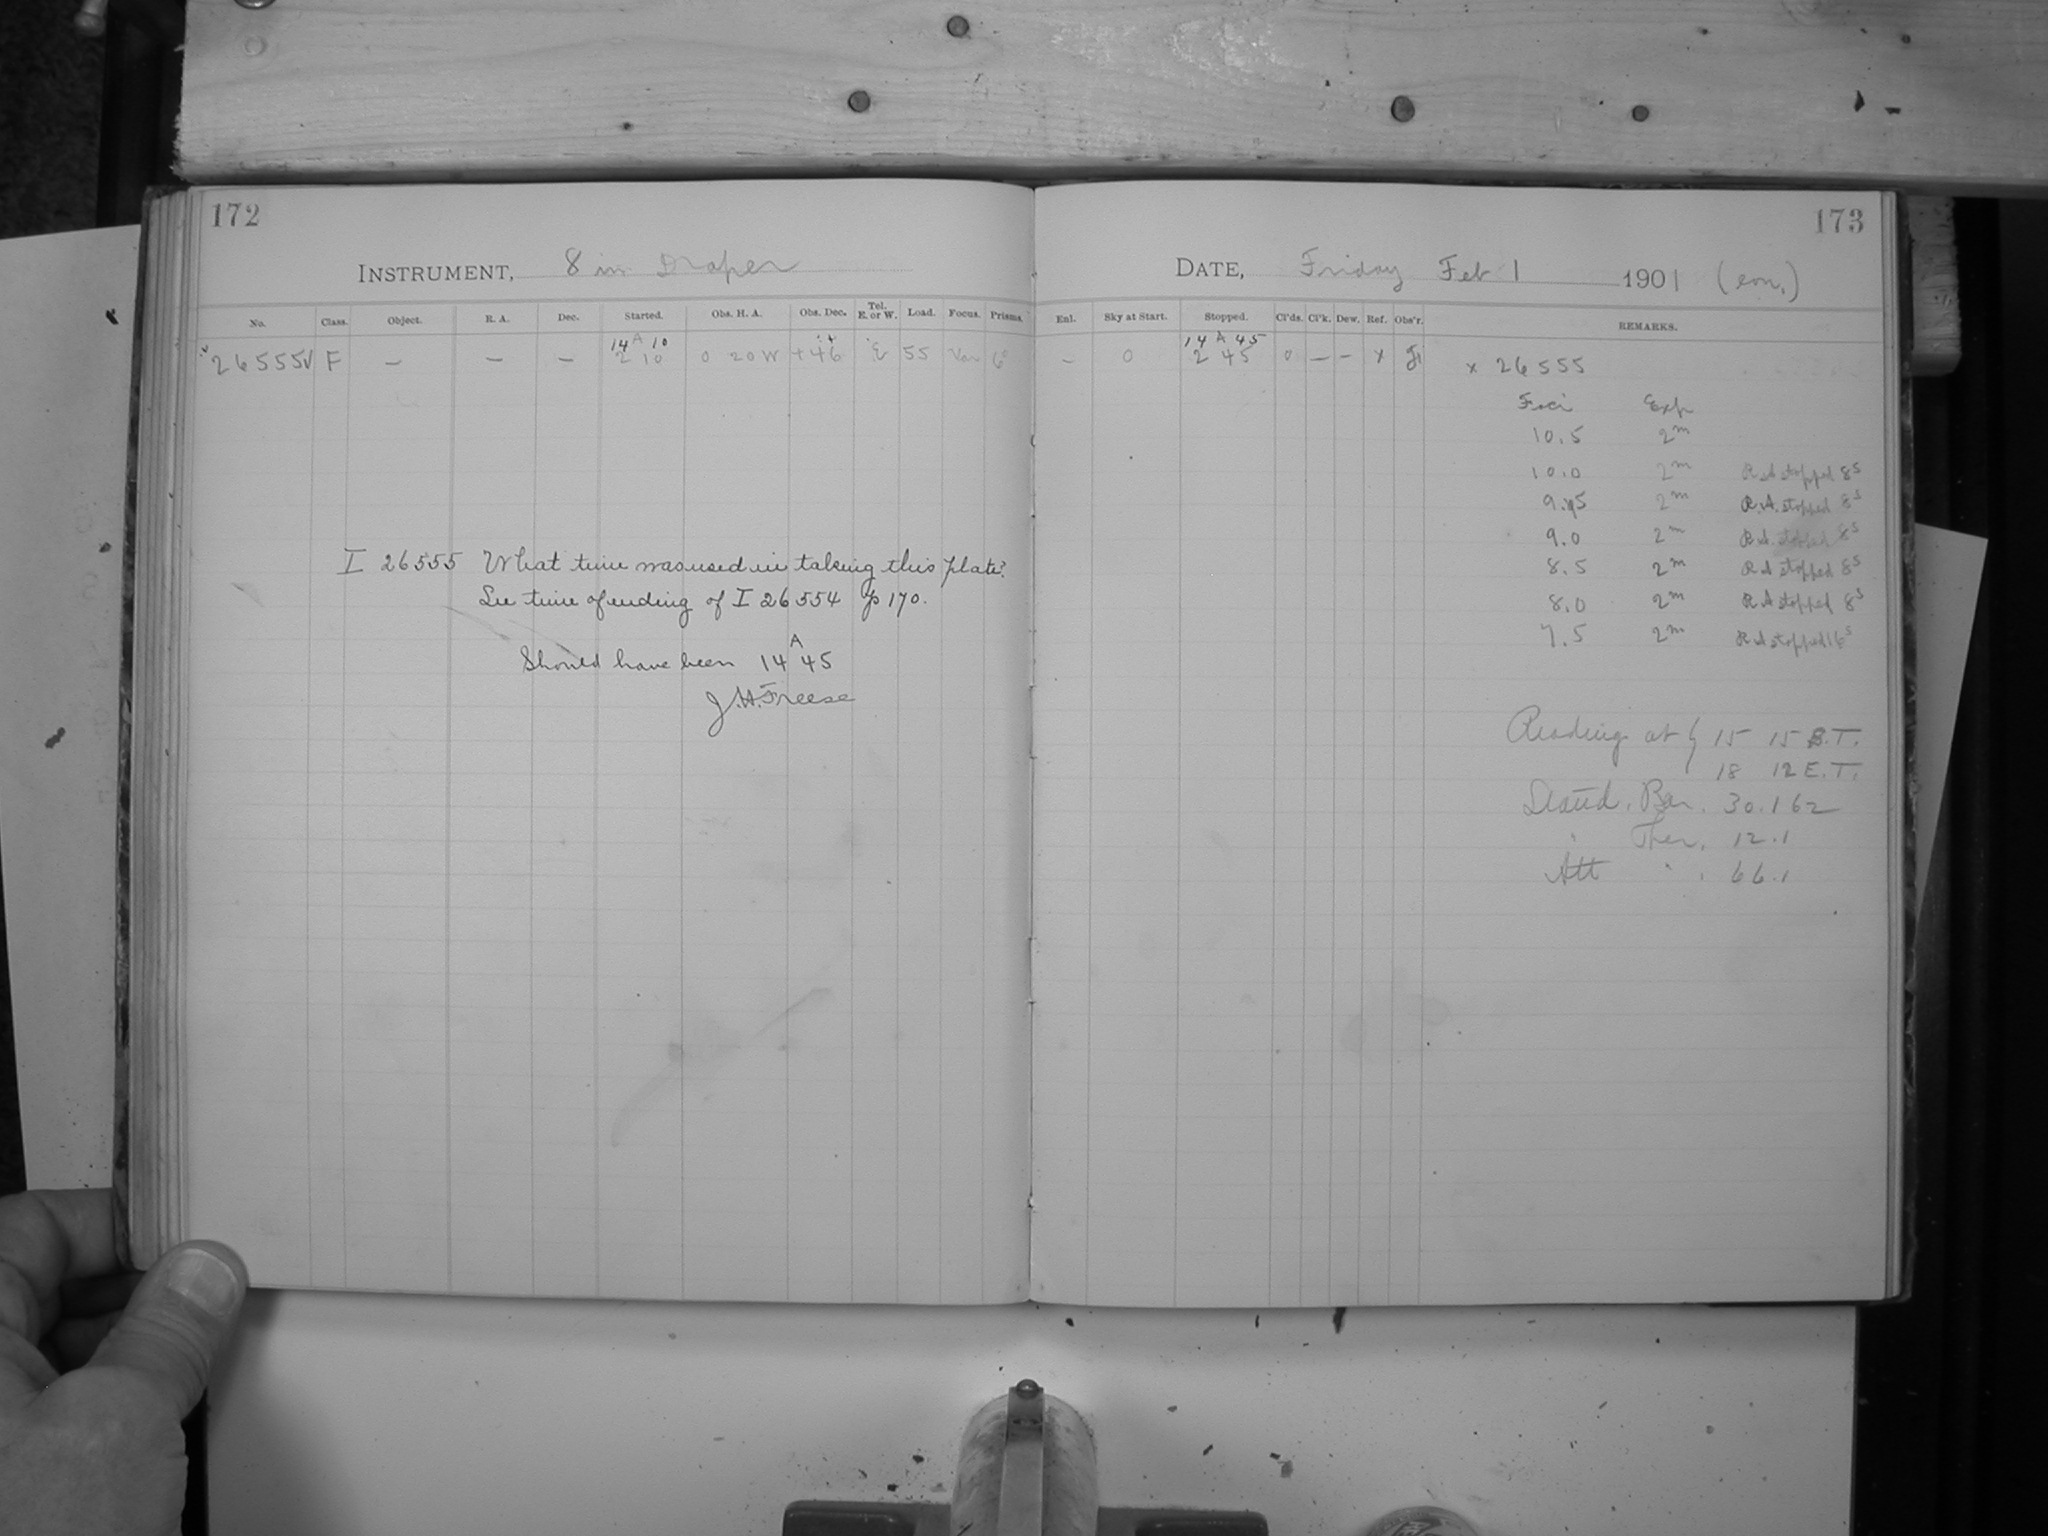 172
INSTRUMENT, 8 in Draper
No. Class. Object. R. A. Dec. Started. Obs. H. A. Obs. Dec. Tel. E. or W. Load. Focus. Prisms.
14 A 10
26555 F — — — 2 10 0 20 W +46 E 55 Var 6
I 26555 What time was used in taking this plate?
See time of ending of I 26554 p 170.
Should have been 14 A 45
J.H. Freese
173
DATE, Friday Feb 1 1901 (con.)
Enl. Sky at Start. Stopped. Cl'ds. Cl'k. Dew. Ref. Obs'r. REMARKS.
14 A 45
— 0 2 45 0 — — x Fr x 26555
Foci Exp
10.5 2m
10.0 2m R A stopped 8s
9.5 2m R.A. stopped 8s
9.0 2m R A. stopped 8s
8.5 2m R A stopped 8s
8.0 2m R A stopped 8s
7.5 2m R A stopped 16s
Readings at { 15 15 S.T.
18 12 E.T.
Stand. Bar. 30.162
" Ther. 12.1
Att " . 66.1